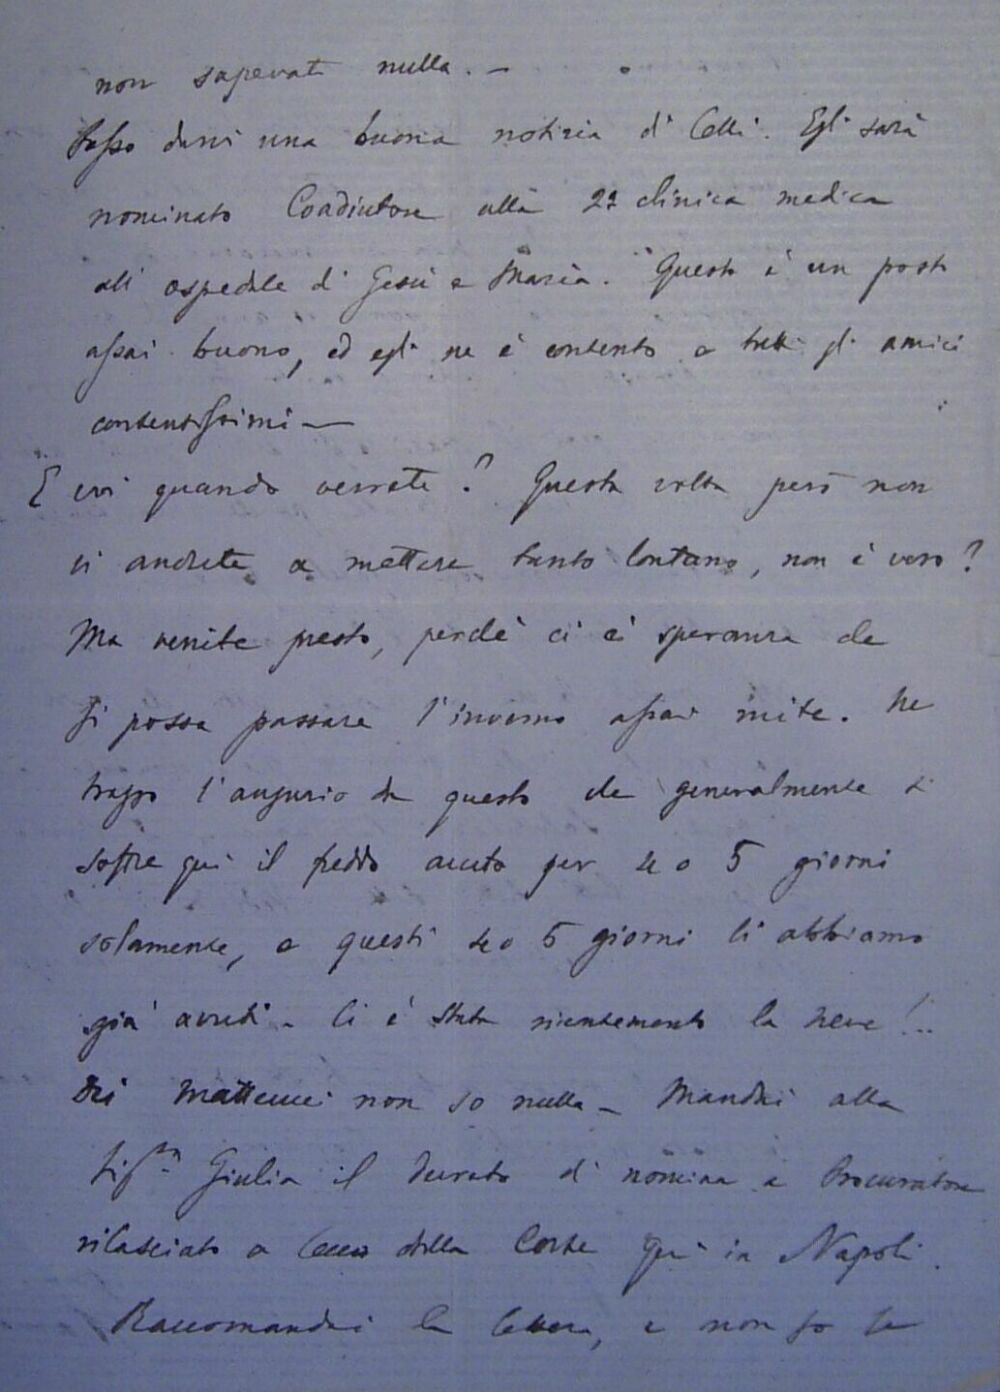 non sapevate nulla. —
Posso darvi una buona notizia di Celli. Egli sarà
nominato Coadiutore alla 2ª clinica medica
all' ospedale di Gesù e Maria. Questo è un posto
assai buono, ed egli ne è contento e tutti gli amici
contentissimi —
E voi quando verrete? Questa volta però non
vi andrete a mettere tanto lontano, non è vero?
Ma venite presto, perchè ci è speranza che
si possa passare l'inverno assai mite. Ne
traggo l'augurio da questo che generalmente si
soffre qui il freddo acuto per 4 o 5 giorni
solamente, e questi 4 o 5 giorni li abbiamo
già avuti — Ci è stata nientemeno la neve!..
Di Matteucci non so nulla — Mandai alla
Sigra Giulia il decreto di nomina a Procuratore
rilasciato a dalla Corte qui in Napoli.
Raccomandai la lettera, e non so se